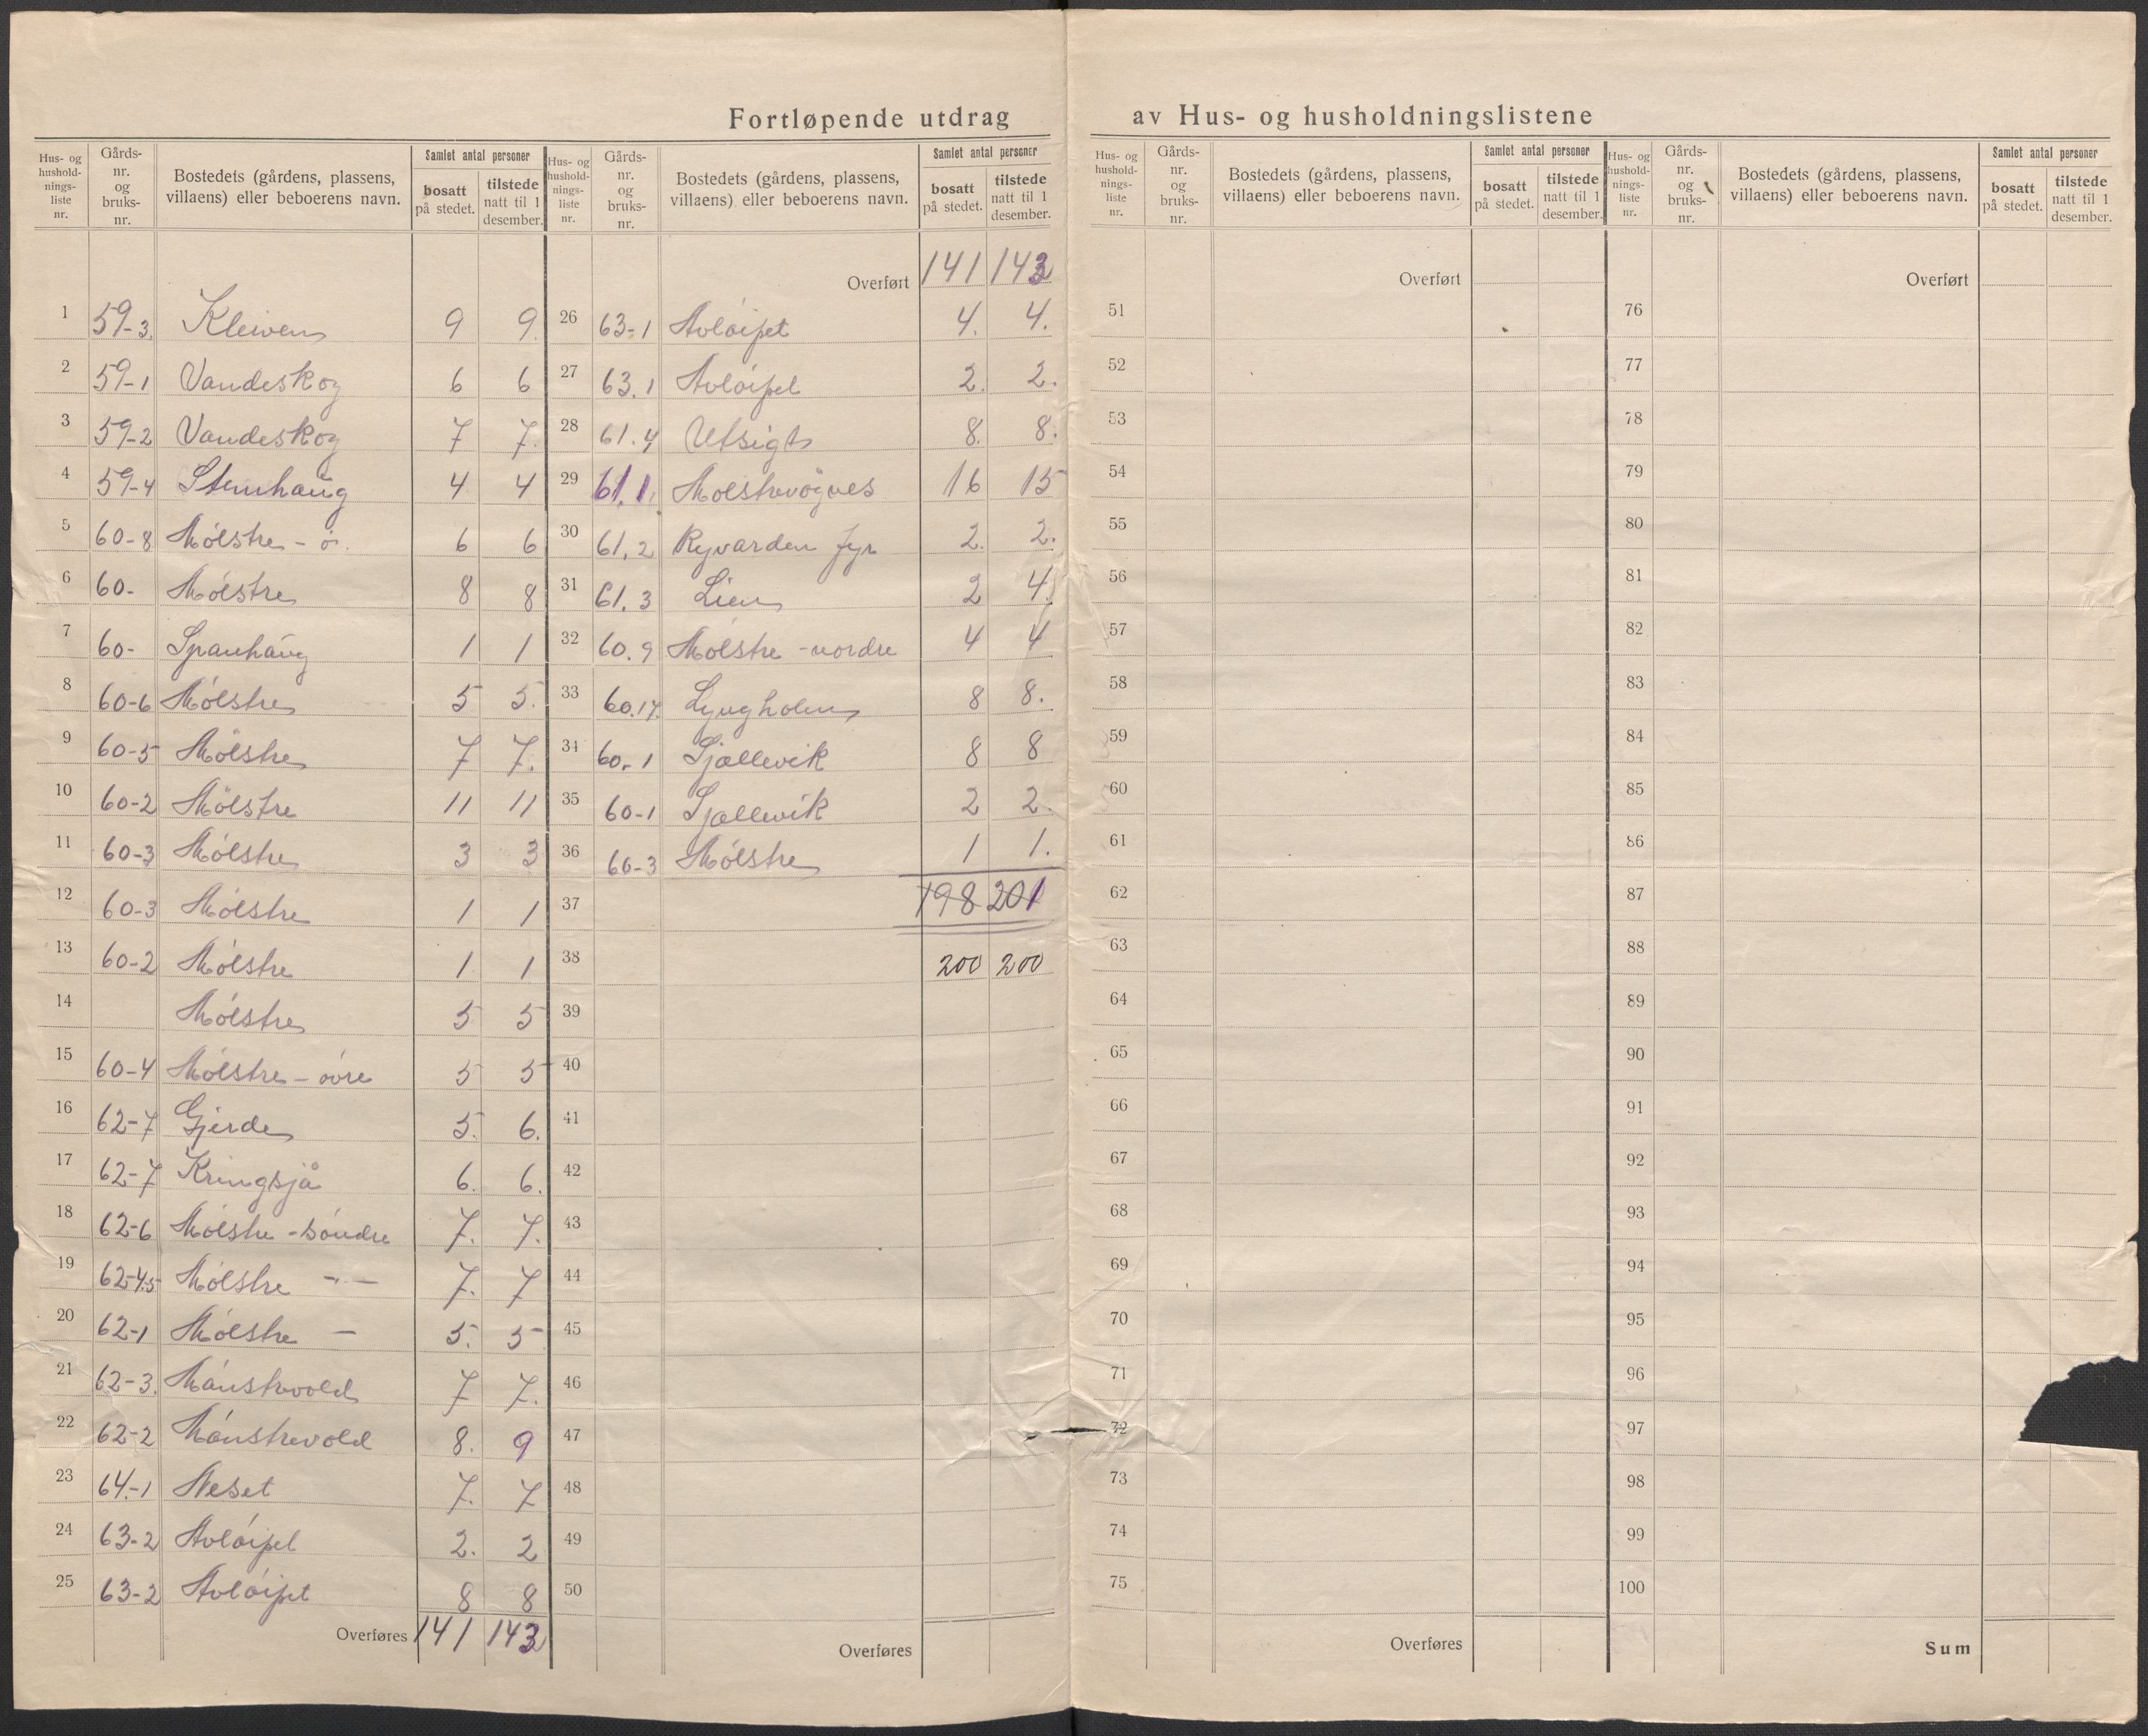 Fortløpende utdrag av Hus- og husholdningslistene
Hus- og husholdnings- liste nr. | Gårds- nr. og bruks- nr. | Bostedets (gårdens, plassens, villaens) eller beboerens navn. | Samlet antal personer | bosatt på stedet. | tilstede natt til 1 desember.
1 59-3. Kleiven 9 9.
2 59-1 Vandeskog 6 6
3 59-2 Vandeskog 7 7.
4 59-4 Stenhaug 4 4
5 60-8 Mölstre - ö. 6 6
6 60- Mölstre 8 8
7 60- Spanhaug 1 1
8 60-6 Mölstre 5 5.
9 60-5 Mölstre 7 7.
10 60-2 Mölstre 11 11
11 60-3 Mölstre 3 3
12 60-3 Mölstre 1 1
13 60-2 Mölstre 1 1
14 Mölstre 5 5
15 60-4 Mölstre - övre 5 5
16 62-7 Gjerde 5. 6.
17 62-7 Kringsjå 6. 6.
18 62-6 Mölstre - söndre 7. 7.
19 62-4.5 Mölstre - - 7. 7
20 62-1 Mölstre - 5. 5
21 62-3. Mönstrevold 7 7.
22 62-2 Mönstrevold 8. 9
23 64.-1 Neset 7. 7
24 63-2 Avlöipet 2. 2
25 63-2 Avlöipet 8 8
Overføres 141 143
Hus- og husholdnings- liste nr. | Gårds- nr. og bruks- nr. | Bostedets (gårdens, plassens, villaens) eller beboerens navn. | Samlet antal personer | bosatt på stedet. | tilstede natt til 1 desember.
Overført 141 143
26 63-1 Avlöipet 4. 4.
27 63.1 Avlöipet 2. 2.
28 61.4 Utsigt 8. 8.
29 61.1. Molstrevögnes 16 15
30 61.2 Ryvarden fyr 2. 2.
31 61.3 Lien 2 4.
32 60.9 Mölstre - nordre 4 4
33 60.17. Lyngholm 8 8.
34 60.1 Sjællevik 8 8
35 60-1 Sjællevik 2 2.
36 60-3 Mölstre 1 1.
37 198 201
38 200 200
39
40
41
42
43
44
45
46
47
48
49
50
Overføres
Hus- og husholdnings- liste nr. | Gårds- nr. og bruks- nr. | Bostedets (gårdens, plassens, villaens) eller beboerens navn. | Samlet antal personer | bosatt på stedet. | tilstede natt til 1 desember.
Overført
51
52
53
54
55
56
57
58
59
60
61
62
63
64
65
66
67
68
69
70
71
72
73
74
75
Overføres
Hus- og husholdnings- liste nr. | Gårds- nr. og bruks- nr. | Bostedets (gårdens, plassens, villaens) eller beboerens navn. | Samlet antal personer | bosatt på stedet. | tilstede natt til 1 desember.
Overført
76
77
78
79
80
81
82
83
84
85
86
87
88
89
90
91
92
93
94
95
96
97
98
99
100
Sum